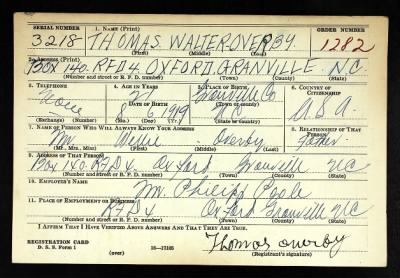 SERIAL NUMBER 1. NAME (Print) ORDER NUMBER
3218 THOMAS WALTER OVERBY. 1282
(First) (Middle) (Last)
2. ADDRESS (Print)
BOX 140. RFD4. OXFORD. GRANVILLE NC
(Number and street or R. F. D. number) (Town) (County) (State)
3. TELEPHONE 4. AGE IN YEARS 5. PLACE OF BIRTH 6. COUNTRY OF CITIZENSHIP
None 21 Granville Co
DATE OF BIRTH (Town or county)
8 1919 NC U.S.A
(Exchange) (Number) (Mo.) (Day) (Yr.) (State or country)
7. NAME OF PERSON WHO WILL ALWAYS KNOW YOUR ADDRESS 8. RELATIONSHIP OF THAT PERSON
Mr. Willie Overby Father
(Mr., Mrs., Miss) (First) (Middle) (Last)
9. ADDRESS OF THAT PERSON
Box 140. RFD4 Oxford Granville NC
(Number and street or R. F. D. number) (Town) (County) (State)
10. EMPLOYER'S NAME
Mr. Philip Pool
11. PLACE OF EMPLOYMENT OR BUSINESS
RFD4 Oxford Granville NC
(Number and street or R. F. D. number) (Town) (County) (State)
I AFFIRM THAT I HAVE VERIFIED ABOVE ANSWERS AND THAT THEY ARE TRUE.
REGISTRATION CARD
D. S. S. Form 1 16—17105 Thomas Overby
(over) (Registrant's signature)